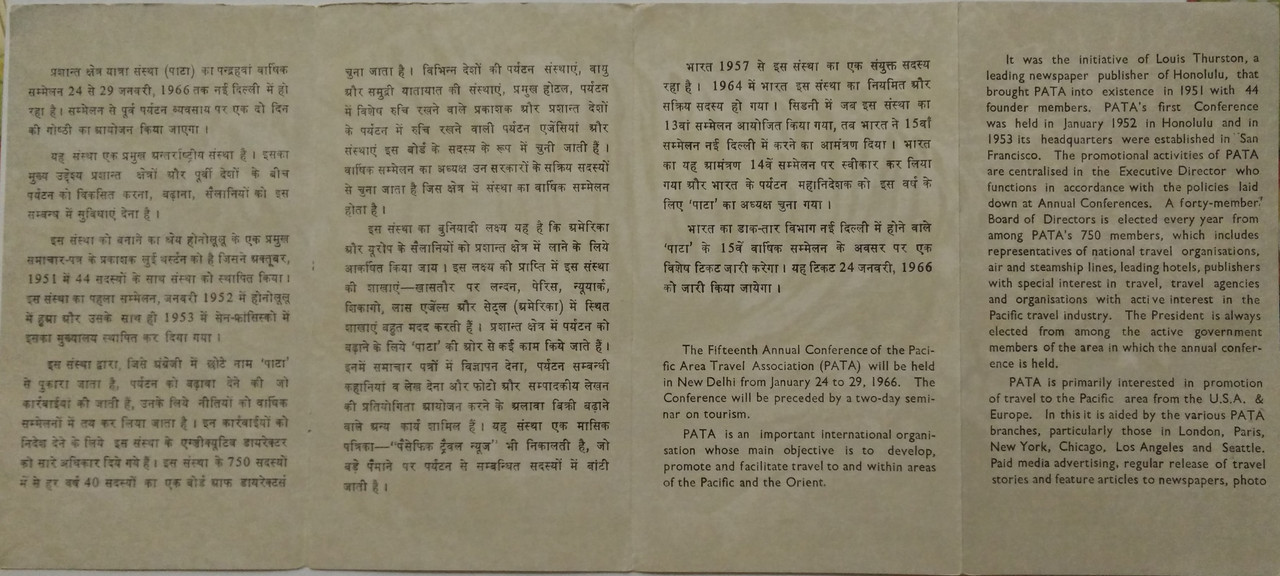 प्रशान्त क्षेत्र यात्रा संस्था (पाटा) का पन्द्रहवां वार्षिक
सम्मेलन 24 से 29 जनवरी, 1966 तक नई दिल्ली में हो
रहा है। सम्मेलन से पूर्व पर्यटन व्यवसाय पर एक दो दिन
की गोष्ठी का आयोजन किया जाएगा।
यह संस्था एक प्रमुख अन्तर्राष्ट्रीय संस्था है। इसका
मुख्य उद्देश्य प्रशान्त क्षेत्रों और पूर्वी देशों के बीच
पर्यटन को विकसित करना, बढ़ाना, सैलानियों को इस
सम्बन्ध में सुविधाएं देना है।
इस संस्था को बनाने का श्रेय होनोलूलू के एक प्रमुख
समाचार-पत्र के प्रकाशक लुई थर्स्टन को है जिसने अक्तूबर,
1951 में 44 सदस्यों के साथ संस्था को स्थापित किया।
इस संस्था का पहला सम्मेलन, जनवरी 1952 में होनोलूलू
में हुआ और उसके साथ ही 1953 में सेन-फ्रांसिस्को में
इसका मुख्यालय स्थापित कर दिया गया।
इस संस्था द्वारा, जिसे अंग्रेजी में छोटे नाम 'पाटा'
से पुकारा जाता है, पर्यटन को बढ़ावा देने की जो
कार्रवाईयां की जाती हैं, उनके लिये नीतियों को वार्षिक
सम्मेलनों में तय कर लिया जाता है। इन कार्रवाईयों को
निदेश देने के लिये इस संस्था के एग्ज़ीक्यूटिव डायरेक्टर
को सारे अधिकार दिये गये हैं। इस संस्था के 750 सदस्यों
में से हर वर्ष 40 सदस्यों का एक बोर्ड आफ डायरेक्टर्स
चुना जाता है। विभिन्न देशों की पर्यटन संस्थाएं, वायु
और समुद्री यातायात की संस्थाएं, प्रमुख होटल, पर्यटन
में विशेष रुचि रखने वाले प्रकाशक और प्रशान्त देशों
के पर्यटन में रुचि रखने वाली पर्यटन एजेंसियां और
संस्थाएं इस बोर्ड के सदस्य के रूप में चुनी जाती हैं।
वार्षिक सम्मेलन का अध्यक्ष उन सरकारों के सक्रिय सदस्यों
से चुना जाता है जिस क्षेत्र में संस्था का वार्षिक सम्मेलन
होता है।
इस संस्था का बुनियादी लक्ष्य यह है कि अमेरिका
और यूरोप के सैलानियों को प्रशान्त क्षेत्र में लाने के लिये
आकर्षित किया जाय। इस लक्ष्य की प्राप्ति में इस संस्था
की शाखाएं—खासतौर पर लन्दन, पेरिस, न्यूयार्क,
शिकागो, लास एंजेल्स और सेट्ल (अमेरिका) में स्थित
शाखाएं बहुत मदद करती हैं। प्रशान्त क्षेत्र में पर्यटन को
बढ़ाने के लिये 'पाटा' की ओर से कई काम किये जाते हैं।
इनमें समाचार पत्रों में विज्ञापन देना, पर्यटन सम्बन्धी
कहानियां व लेख देना और फोटो और सम्पादकीय लेखन
की प्रतियोगिता आयोजन करने के अलावा बिक्री बढ़ाने
वाले अन्य कार्य शामिल हैं। यह संस्था एक मासिक
पत्रिका—"पैसेफिक ट्रैवल न्यूज" भी निकालती है, जो
बड़े पैमाने पर पर्यटन से सम्बन्धित सदस्यों में बांटी
जाती है।
भारत 1957 से इस संस्था का एक संयुक्त सदस्य
रहा है। 1964 में भारत इस संस्था का नियमित और
सक्रिय सदस्य हो गया। सिडनी में जब इस संस्था का
13वां सम्मेलन आयोजित किया गया, तब भारत ने 15वाँ
सम्मेलन नई दिल्ली में करने का आमंत्रण दिया। भारत
का यह आमंत्रण 14वें सम्मेलन पर स्वीकार कर लिया
गया और भारत के पर्यटन महानिदेशक को इस वर्ष के
लिए 'पाटा' का अध्यक्ष चुना गया।
भारत का डाक-तार विभाग नई दिल्ली में होने वाले
'पाटा' के 15वें वार्षिक सम्मेलन के अवसर पर एक
विशेष टिकट जारी करेगा। यह टिकट 24 जनवरी, 1966
को जारी किया जायेगा।
The Fifteenth Annual Conference of the Paci-
fic Area Travel Association (PATA) will be held
in New Delhi from January 24 to 29, 1966. The
Conference will be preceded by a two-day semi-
nar on tourism.
PATA is an important international organi-
sation whose main objective is to develop,
promote and facilitate travel to and within areas
of the Pacific and the Orient.
It was the initiative of Louis Thurston, a
leading newspaper publisher of Honolulu, that
brought PATA into existence in 1951 with 44
founder members. PATA's first Conference
was held in January 1952 in Honolulu and in
1953 its headquarters were established in San
Francisco. The promotional activities of PATA
are centralised in the Executive Director who
functions in accordance with the policies laid
down at Annual Conferences. A forty-member
Board of Directors is elected every year from
among PATA's 750 members, which includes
representatives of national travel organisations,
air and steamship lines, leading hotels, publishers
with special interest in travel, travel agencies
and organisations with active interest in the
Pacific travel industry. The President is always
elected from among the active government
members of the area in which the annual confer-
ence is held.
PATA is primarily interested in promotion
of travel to the Pacific area from the U.S.A. &
Europe. In this it is aided by the various PATA
branches, particularly those in London, Paris,
New York, Chicago, Los Angeles and Seattle.
Paid media advertising, regular release of travel
stories and feature articles to newspapers, photo